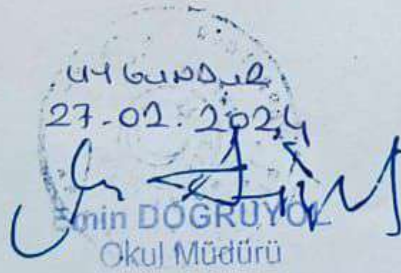 UYGUNDUR
27.02.2024
Emin DOĞRUYOL
Okul Müdürü